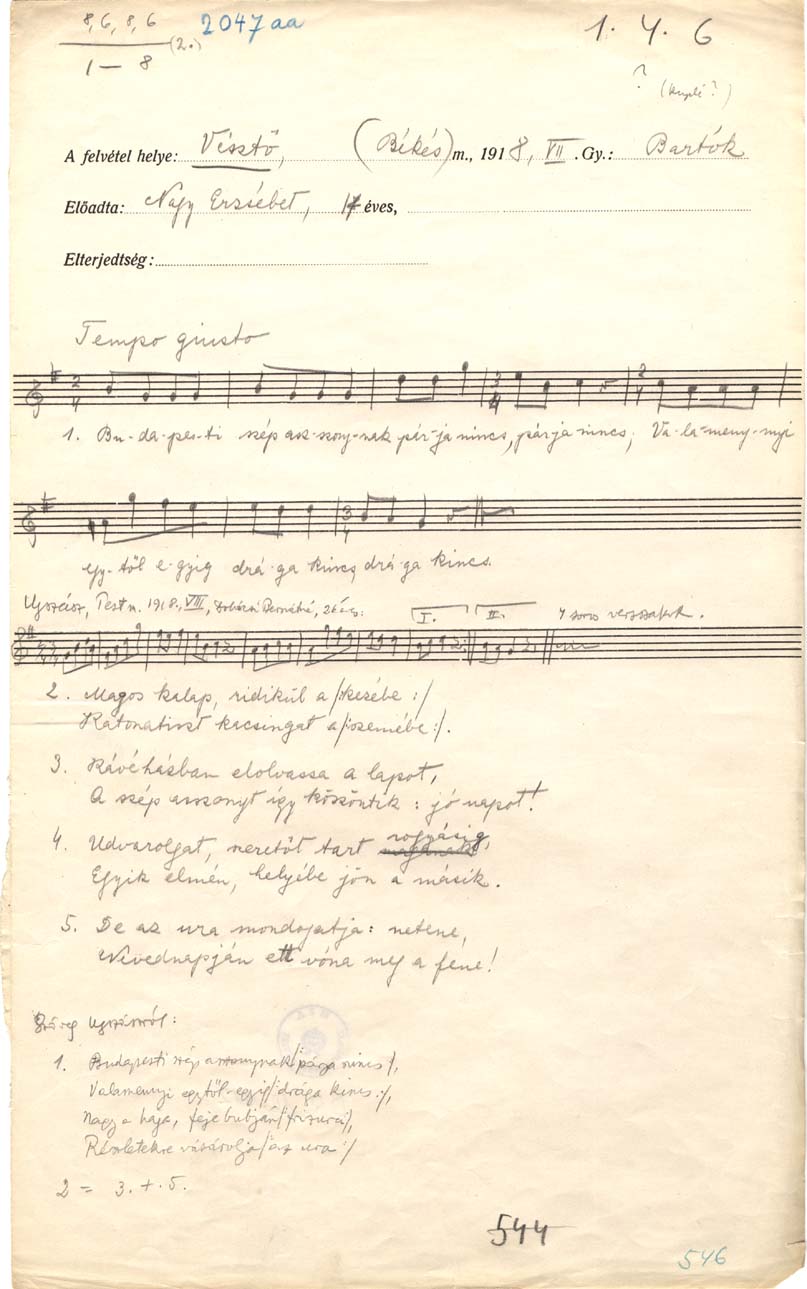 8, 6, 8, 6
1 – 8 (2.)
2047 aa
1. 4. 6
? (kuplé?)
A felvétel helye: Vésztő, (Békés) m., 1918, VII. Gy.: Bartók
Előadta: Nagy Erzsébet, 17 éves,
Elterjedtség:
Tempo giusto
2/4 3/4 2/4
1. Bu-da-pes-ti szép asz-szony-nak pár-ja nincs, párja nincs; Va-la-meny-nyi
3/4
egy-től e-gyig drá-ga kincs, drá-ga kincs.
Ujszász, Pest m. 1918., VIII., 26 éves: I. II. 4 soros versszakok.
2. Magos kalap, ridikül a /:kezébe:/
Katonatiszt kacsingat a /:szemébe:/.
3. Kávéházban elolvassa a lapot,
A szép asszonyt így köszöntik: jó napot!
4. Udvarolgat, szeretőt tart rogyásig,
Egyik elmén, helyébe jön a másik.
5. De az ura mondogatja: netene,
Nevednapján ett vóna meg a fene!
Szöveg Ujszászról:
1. Budapesti szép asszonynak /:párja nincs:/,
Valamennyi egytől-egyig /:drága kincs:/,
Nagy a haja, feje bubján /:frizura:/,
Részletekre vásárolja /:az ura:/
2 = 3. + 5.
544
546